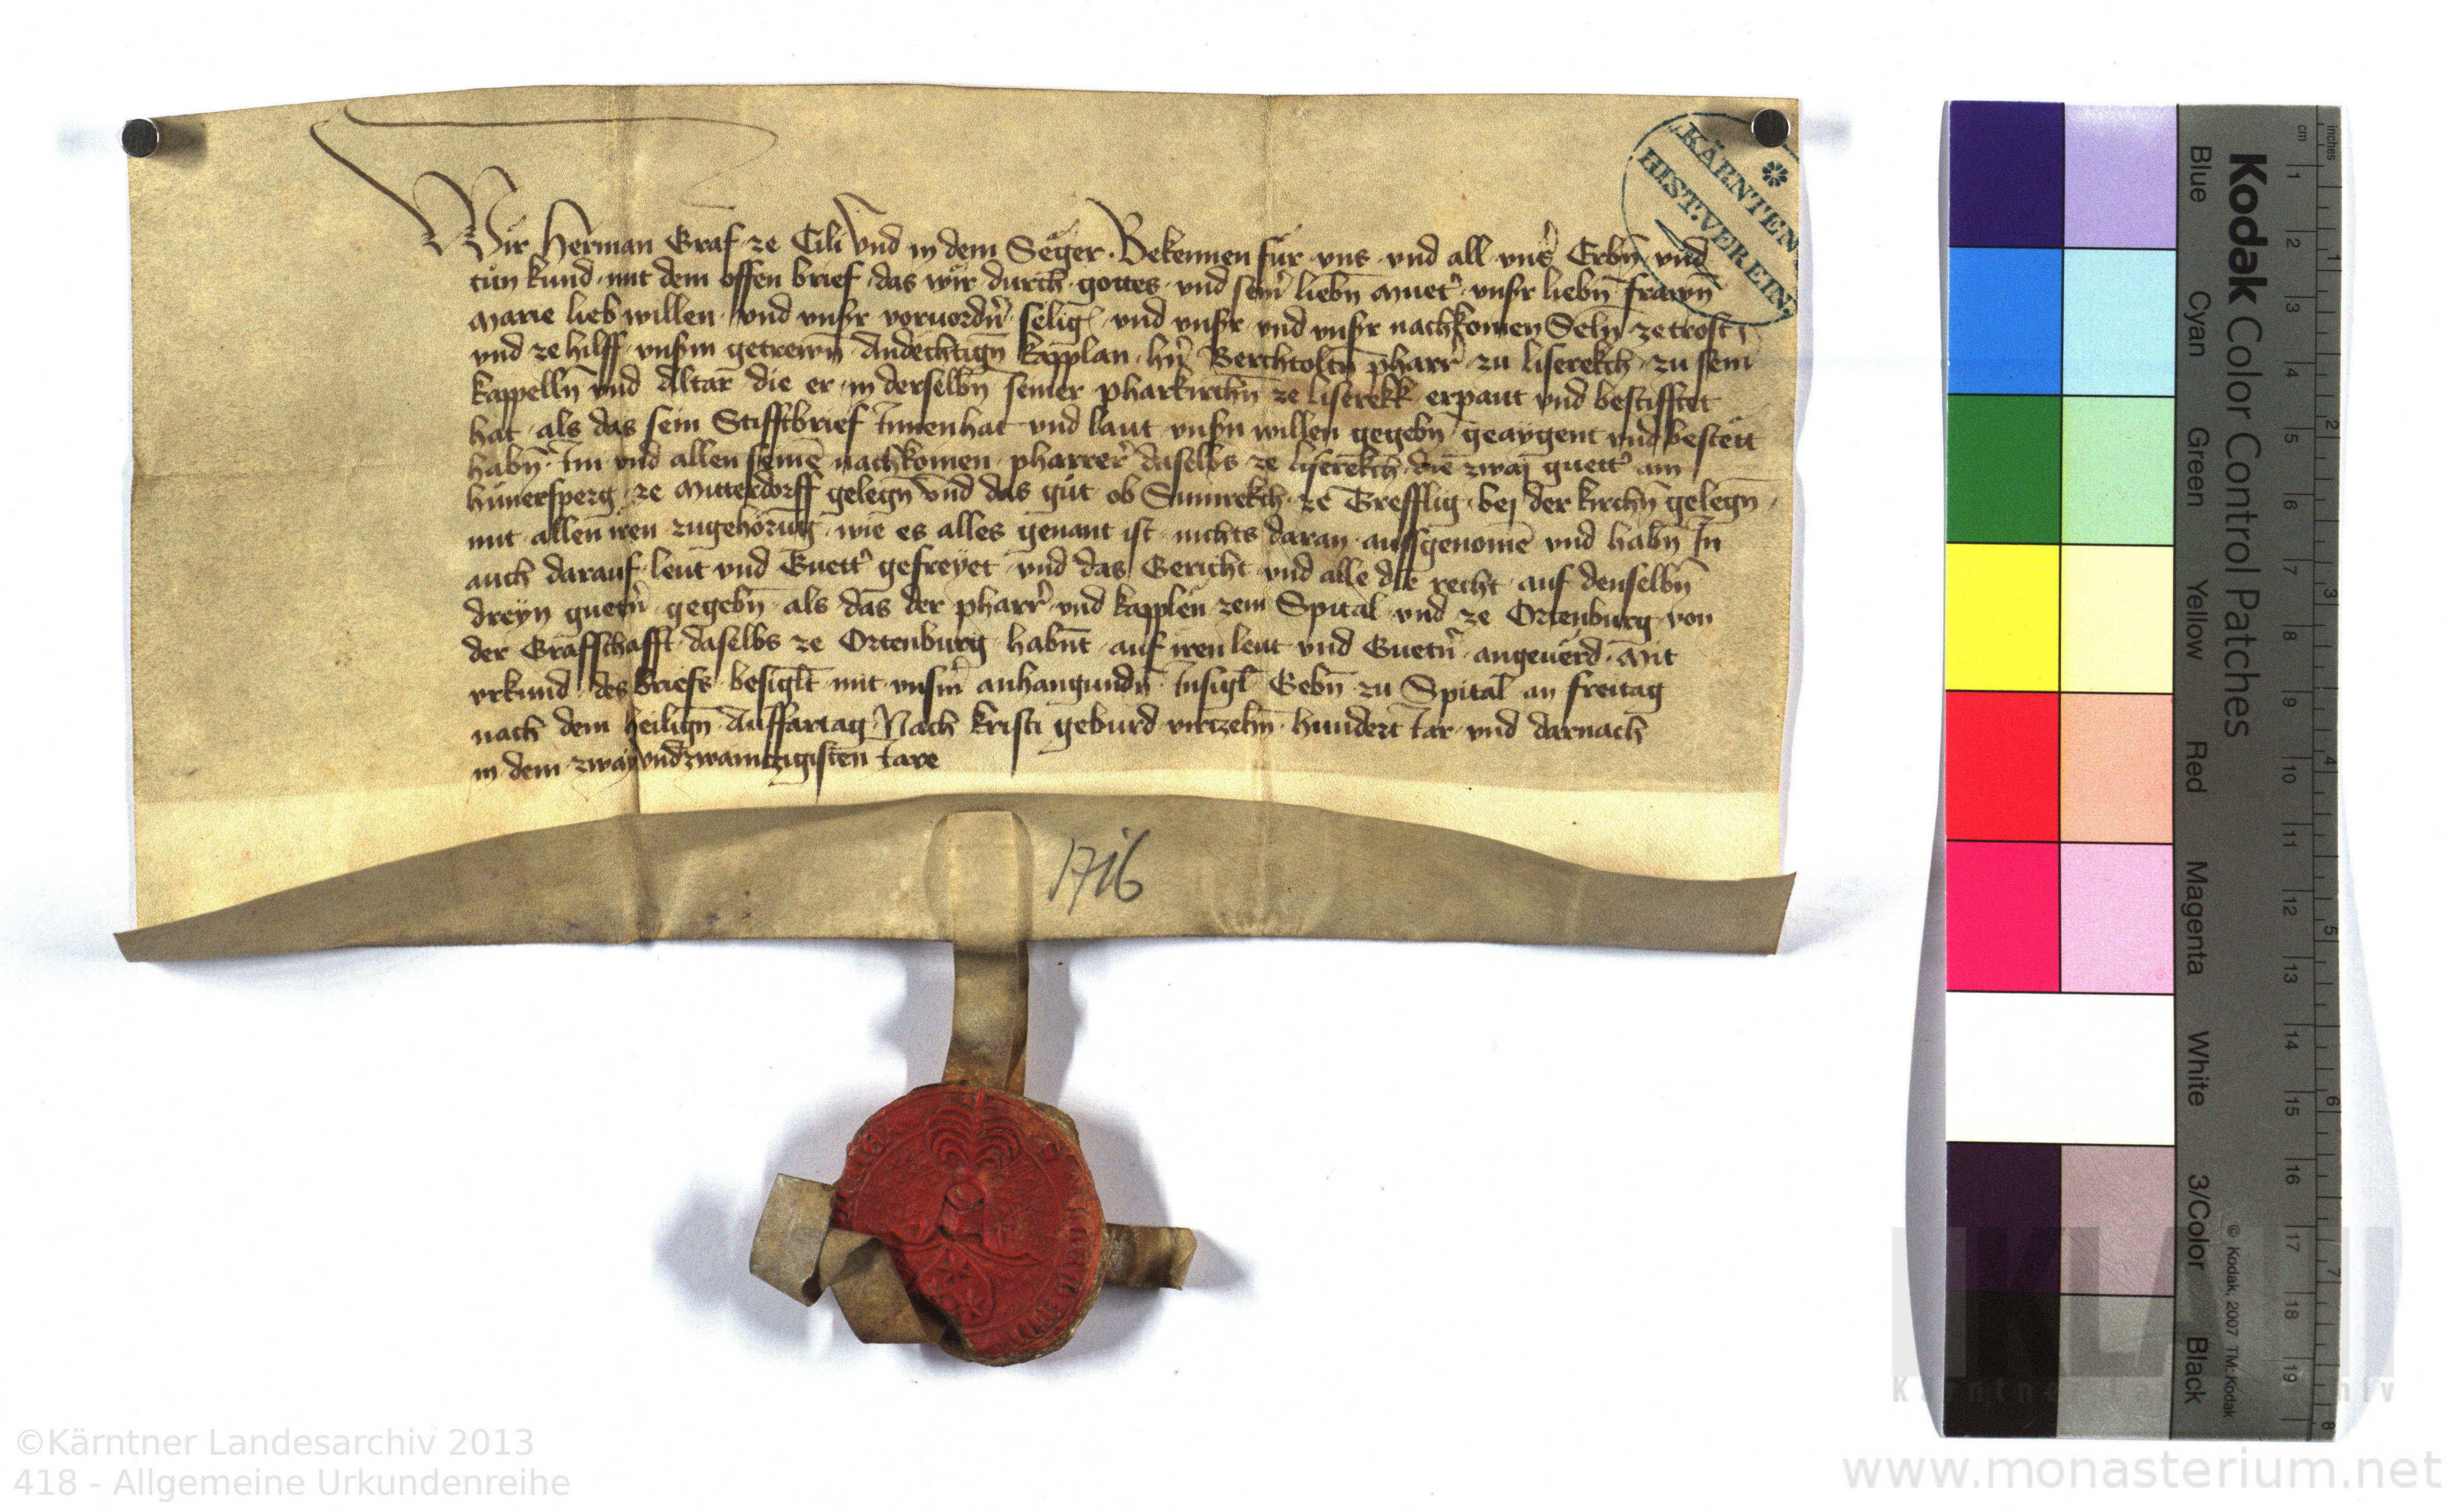 Wir Herman Graf ze Cili vnd in dem Seger. Bekennen für vns vnd all vnser Erbn̄ vnd
tün kund mit dem offen brief das wir durch gottes vnd seiner liebn̄ Muet̄ vnsr liebn̄ frawn̄
Marie lieb willen vnd vnsr voruordn̄ selig vnd vnsr vnd vnsr nachkomen Seln̄ ze trost
vnd ze hilff vnsm getrewn̄ Andechtign̄ kapplan hn̄ Berchtoltn̄ pharr̄ zu liserekch zu sein
kappelln̄ vnd Altar die er in derselbn̄ seiner pharkirchn̄ ze liserekk erpaut vnd bestifftet
hat als das sein Stifftbrief Innenhat vnd laut vnsn̄ willen gegebn̄ geaygent vnd bestett
habn̄ Im vnd allen seinē nachkomen pharrer̄ daselbs ze liserekch die zwaj guett̄ am
hünersperg ze Mitterdorff gelegn̄ vnd das güt ob Sumrekch ze Trefflig bej der kirchn̄ gelegn̄
mit allen iren zugehörūg wie es alles genant ist nichts daran aussgenomē vnd habn̄ In
auch darauf leüt vnd Guett̄ gefreyet vnd das Gericht vnd alle die recht auf denselbn̄
dreyn guetn̄ gegebn̄ als das der pharr̄ vnd kapplen zem Spital vnd ze Ortenburg von
der Grafschafft daselbs ze Ortenburg habnt auf iren leut vnd Guetn̄ angeuerd Mit
vrkund des briefs besiglt mit vnsm̄ anhangundn̄ Insigl Gebn̄ zu Spital an freitag
nach dem heilign̄ Auffartag Nach kristi geburd virczehn̄ hundert Iar vnd darnach
in dem zwayvndzwainczigisten Iare
KÄRNTEN
HIST.VEREIN
1716
Kodak Color Control Patches
Blue Cyan Green Yellow Red Magenta White 3/Color Black
© Kodak, 2007 TM: Kodak
cm 1 2 3 4 5 6 7 8 9 10 11 12 13 14 15 16 17 18 19
inches 1 2 3 4 5 6 7 8
KLA
©Kärntner Landesarchiv 2013
418 - Allgemeine Urkundenreihe
www.monasterium.net